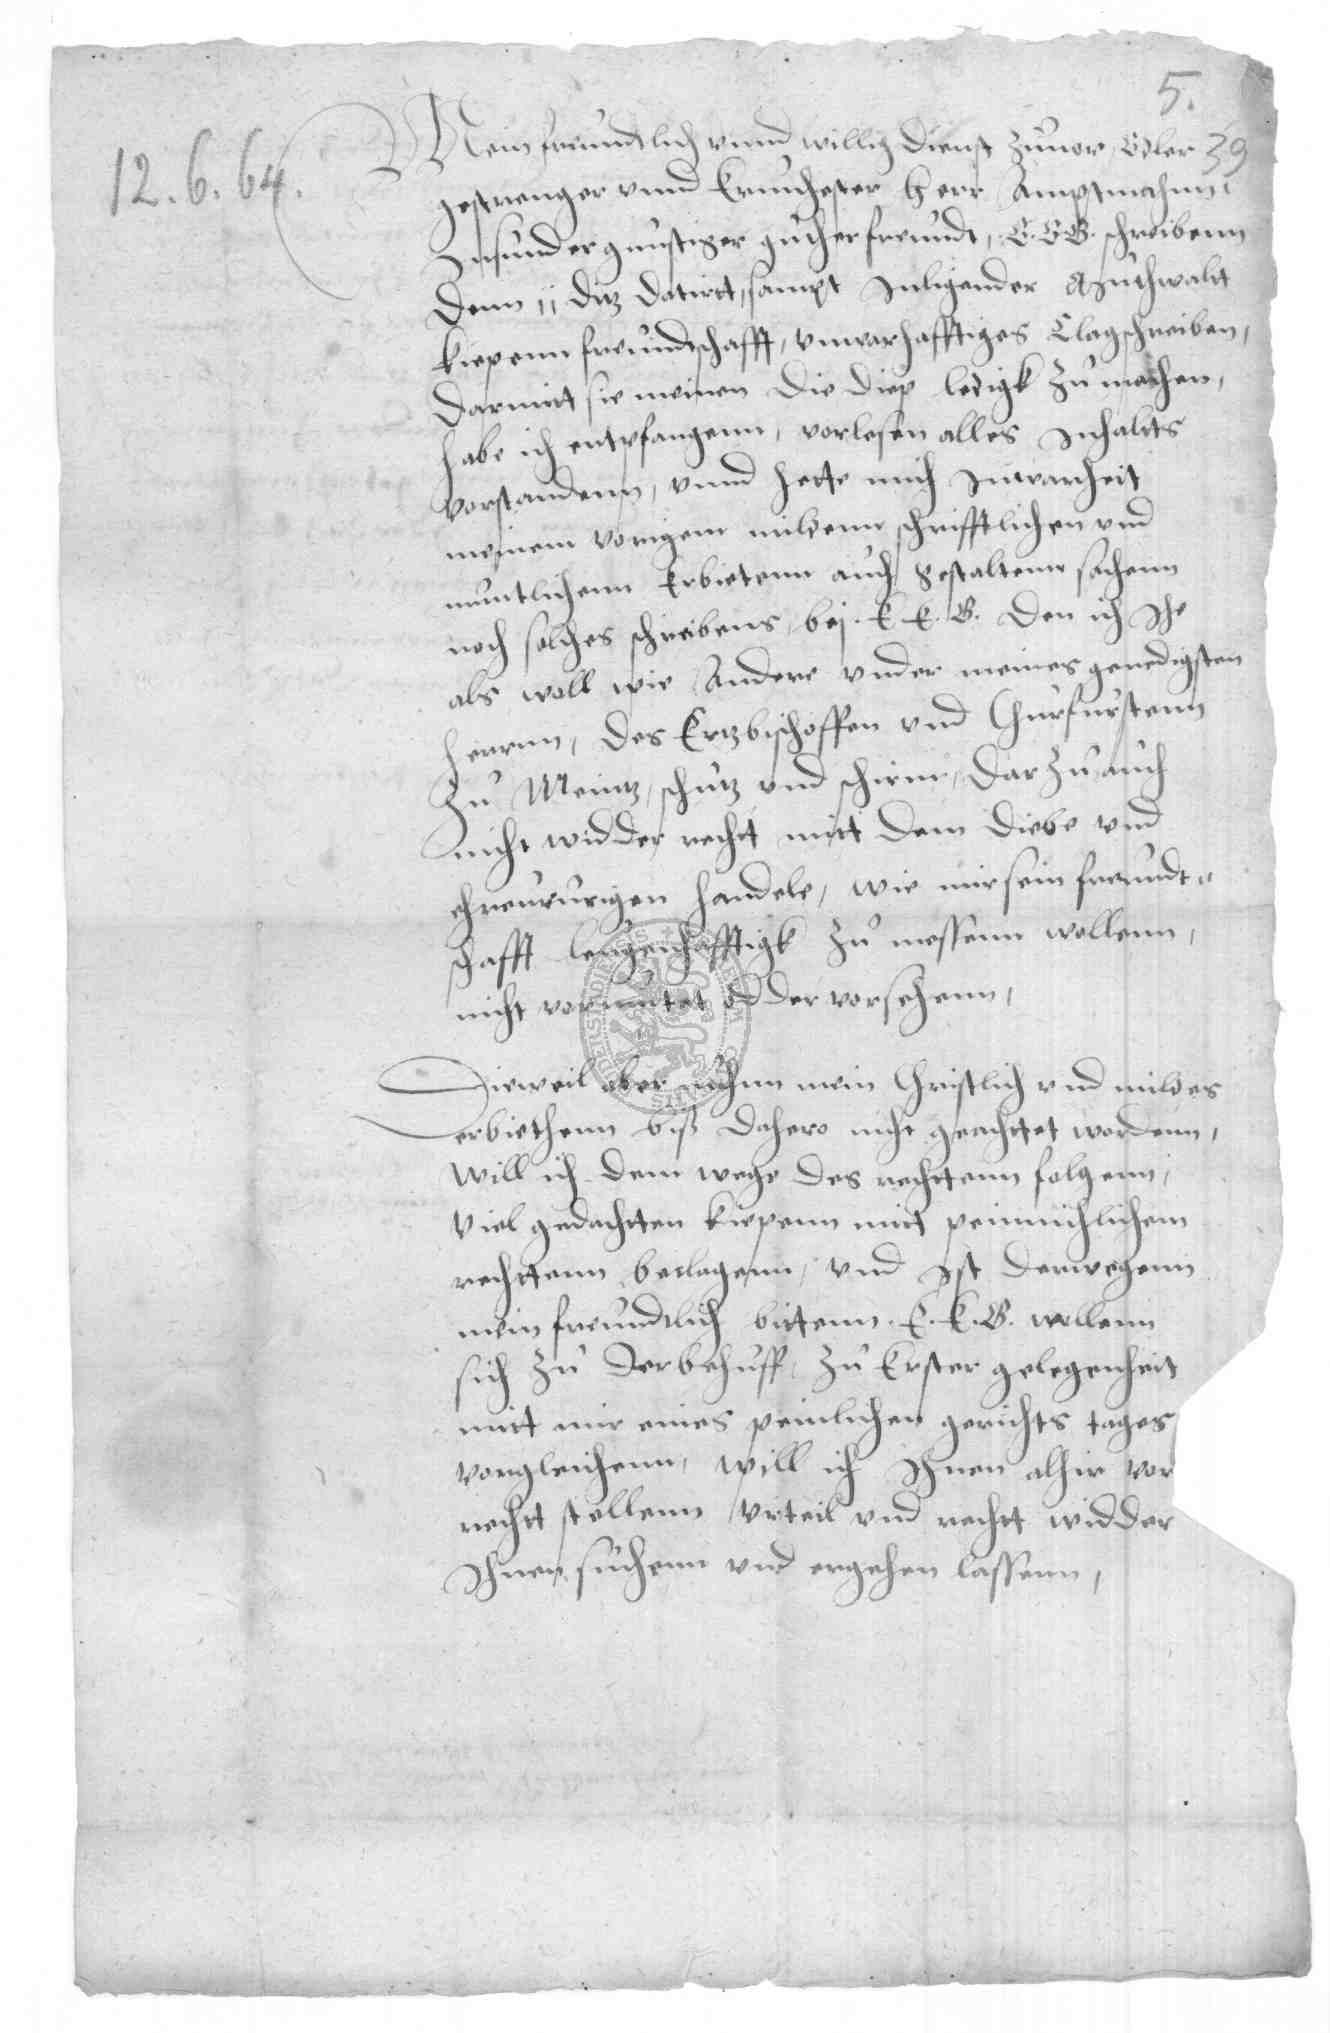 5.
39
12. 6. 64.
Mein freundtlich vnnd willig dienst zuuor, Edler
gestrenger vnnd Ernuhester Herr Amptmahnn
Insunder gunstiger guther freundt, E. E. G. schreibenn
denn 11 ditz datirtt, sampt Inligender
Kiepenn freundtschafft, vnwarhafftiges Clagschreiben,
darmitt sie meinen die diep ledigk zu machen,
habe ich entpfangenn, vorlesen alles Inhaltts
vorstandenn, vnnd hette mich Inwarheit
meinem vorigem mildenn schrifftlichen vnd
muntlichenn Erbietenn auch gestaltenn sachenn
noch solches schreibens, bei E. E. G. den ich Ihe
als woll wie Andere vnder meines genedigsten
herrnn, des Ertzbischoffen vnd Churfurstenn
zu Meintz, schutz vnd schirm, darzu auch
nicht widder recht mitt dem diebe vnd
handele, wie mir sein freundt-
schafft leugenhafftigk zu messenn wollenn,
nicht vormutet odder vorsehenn,
Dieweil aber nuhnn mein Christlich vnd mildes
erbiethenn biß dahero nicht geachttet wordenn,
Will ich dem wege des rechttenn folgenn,
viel gedachtten Kiepenn mitt peinnichlichem
rechttenn beclagenn, vnd Ist derwegenn
mein freundtlich bittenn E. E. G. wollenn
sich zu der behuff, zu Erster gelegenheit
mitt mir eines peinlichen gerichts tages
vorgleichenn, will ich Ihnen alhir vor
recht stellenn vrteil vnd recht widder
Ihnen suchenn vnd ergehen lassenn,